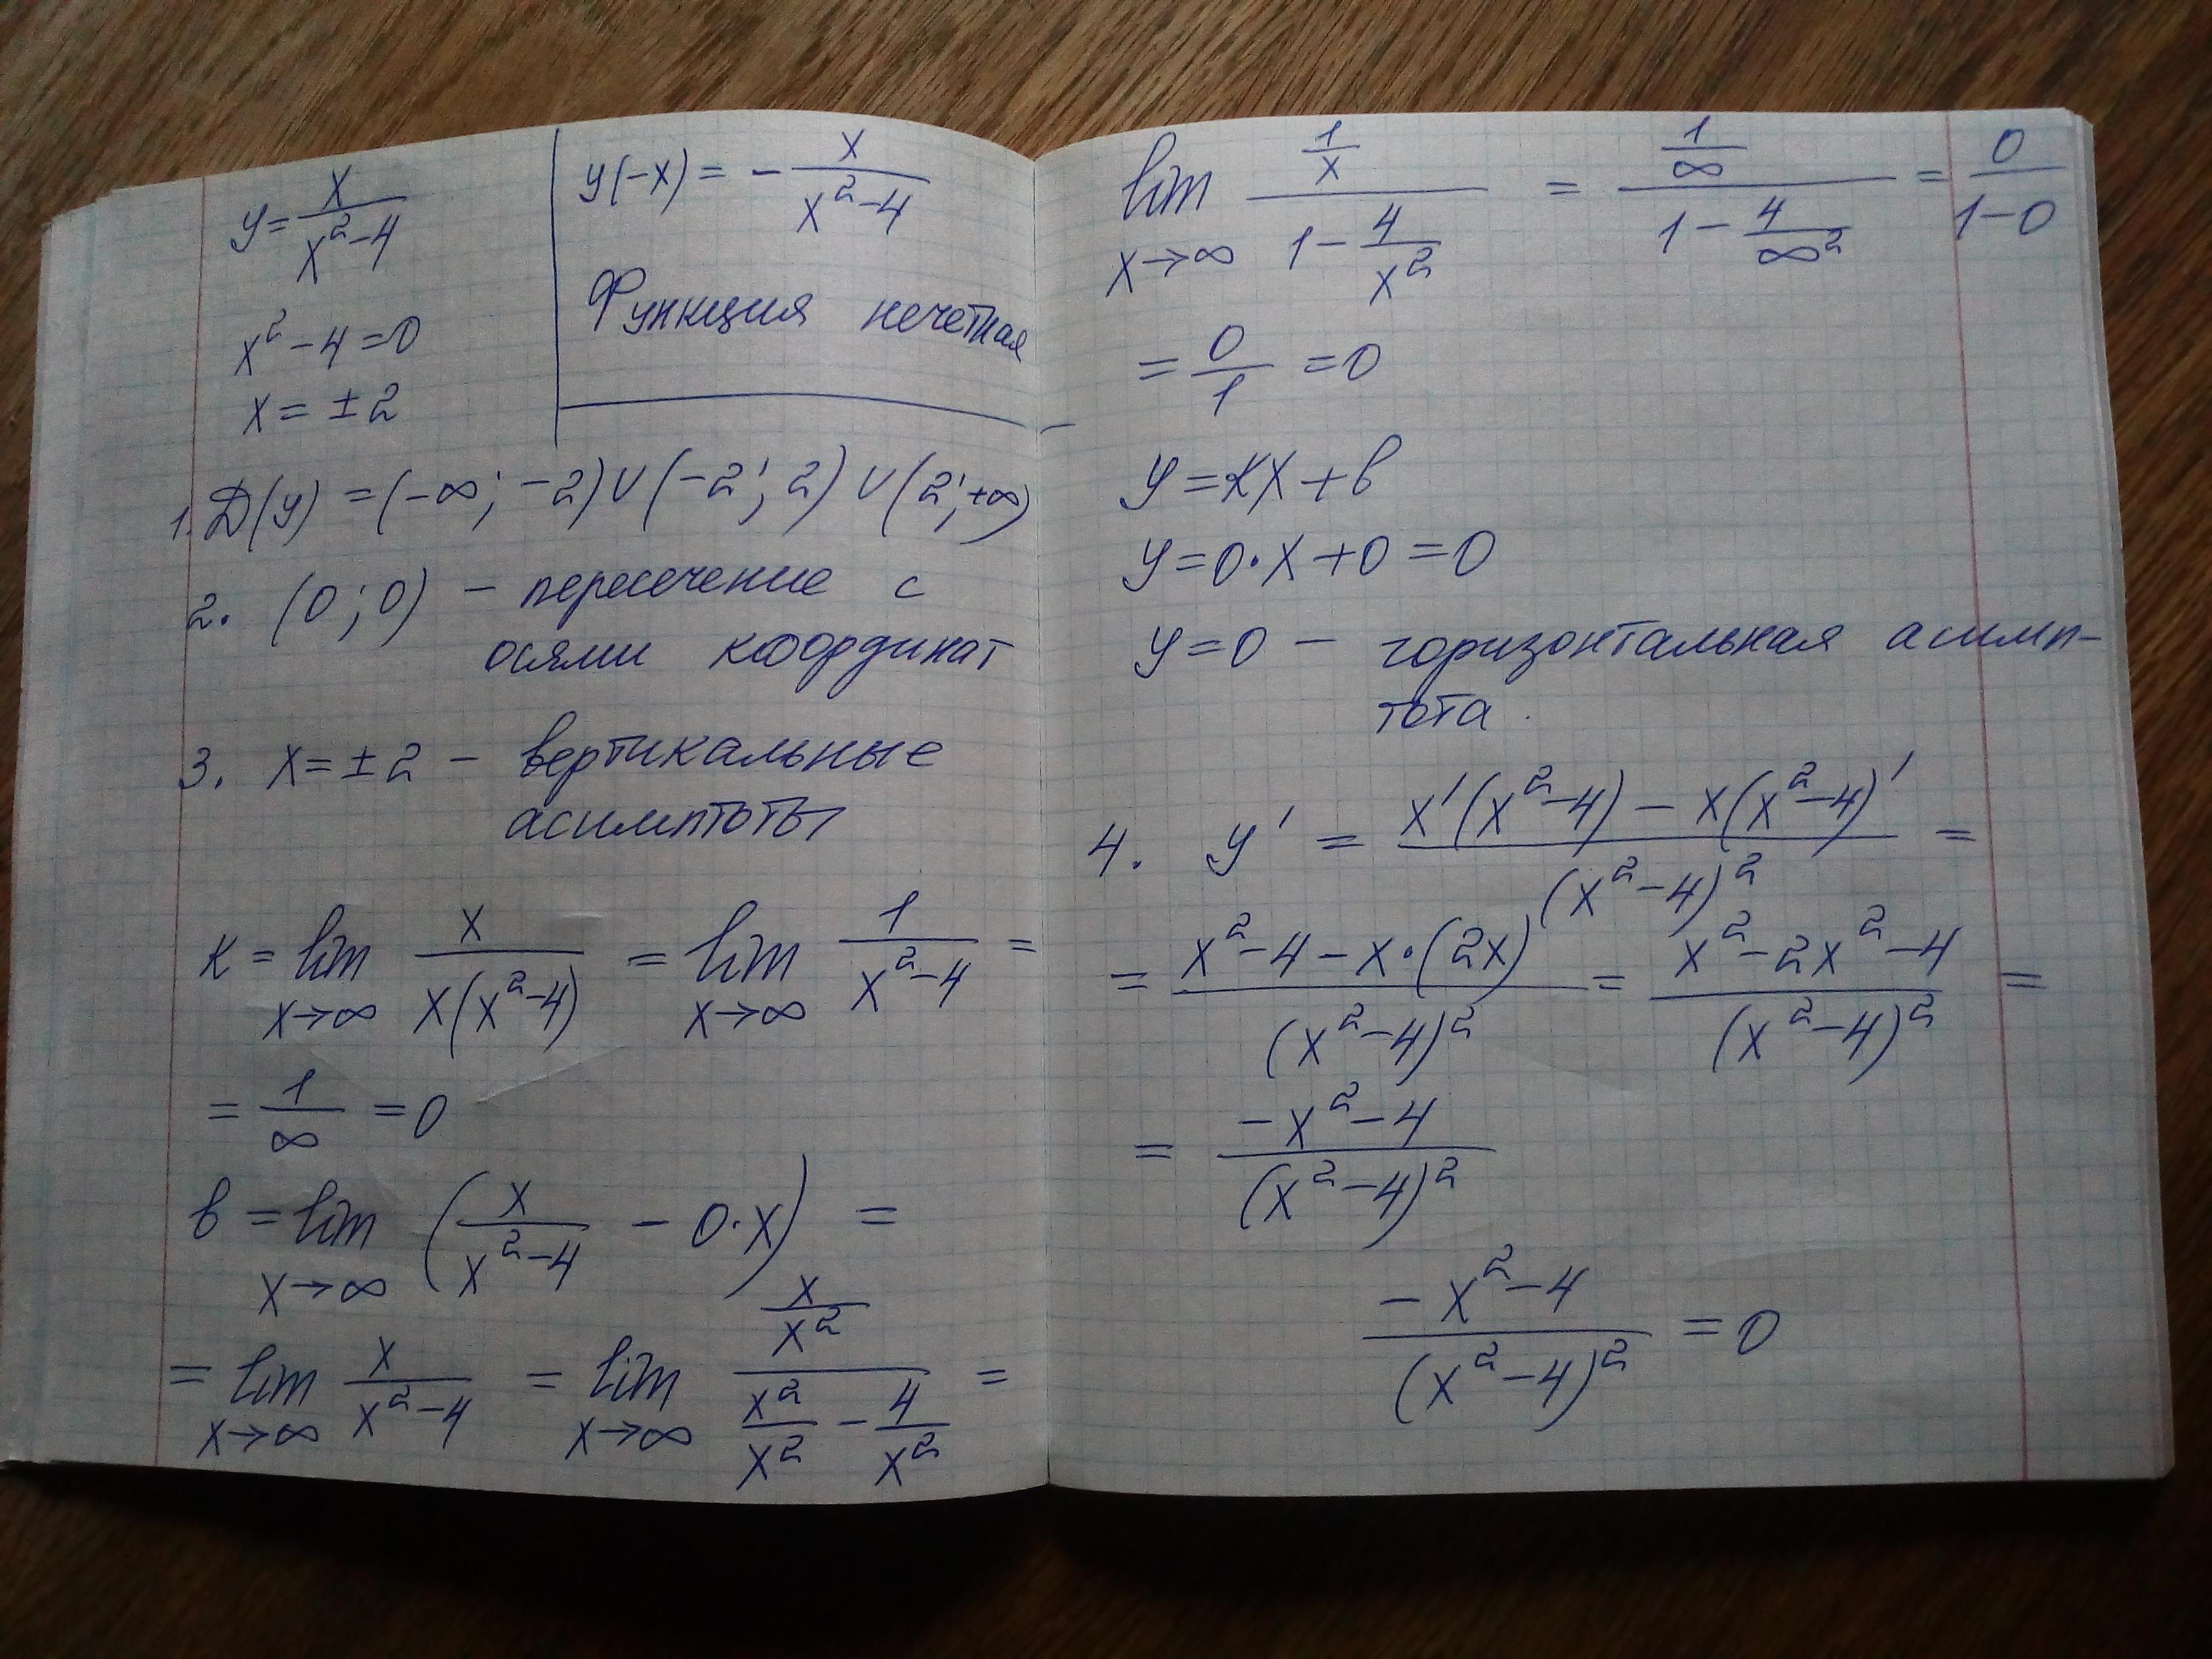 y = x/(x²-4)
x²-4=0
x = ±2
y(-x) = - x/(x²-4)
Функция нечетная
1. D(y) = (-∞; -2) ∪ (-2; 2) ∪ (2; +∞)
2. (0; 0) – пересечение с
осями координат
3. x = ±2 – вертикальные
асимптоты
k = lim x→∞ x/(x(x²-4)) = lim x→∞ 1/(x²-4) =
= 1/∞ = 0
b = lim x→∞ (x/(x²-4) - 0·x) =
= lim x→∞ x/(x²-4) = lim x→∞ (x/x²)/(x²/x² - 4/x²) =
lim x→∞ (1/x)/(1 - 4/x²) = (1/∞)/(1 - 4/∞²) = 0/(1-0)
= 0/1 = 0
y = kx + b
y = 0·x + 0 = 0
y = 0 – горизонтальная асимп-
тота.
4. y' = (x'(x²-4) - x(x²-4)')/(x²-4)² =
= (x²-4-x·(2x))/(x²-4)² = (x²-2x²-4)/(x²-4)² =
= (-x²-4)/(x²-4)²
(-x²-4)/(x²-4)² = 0